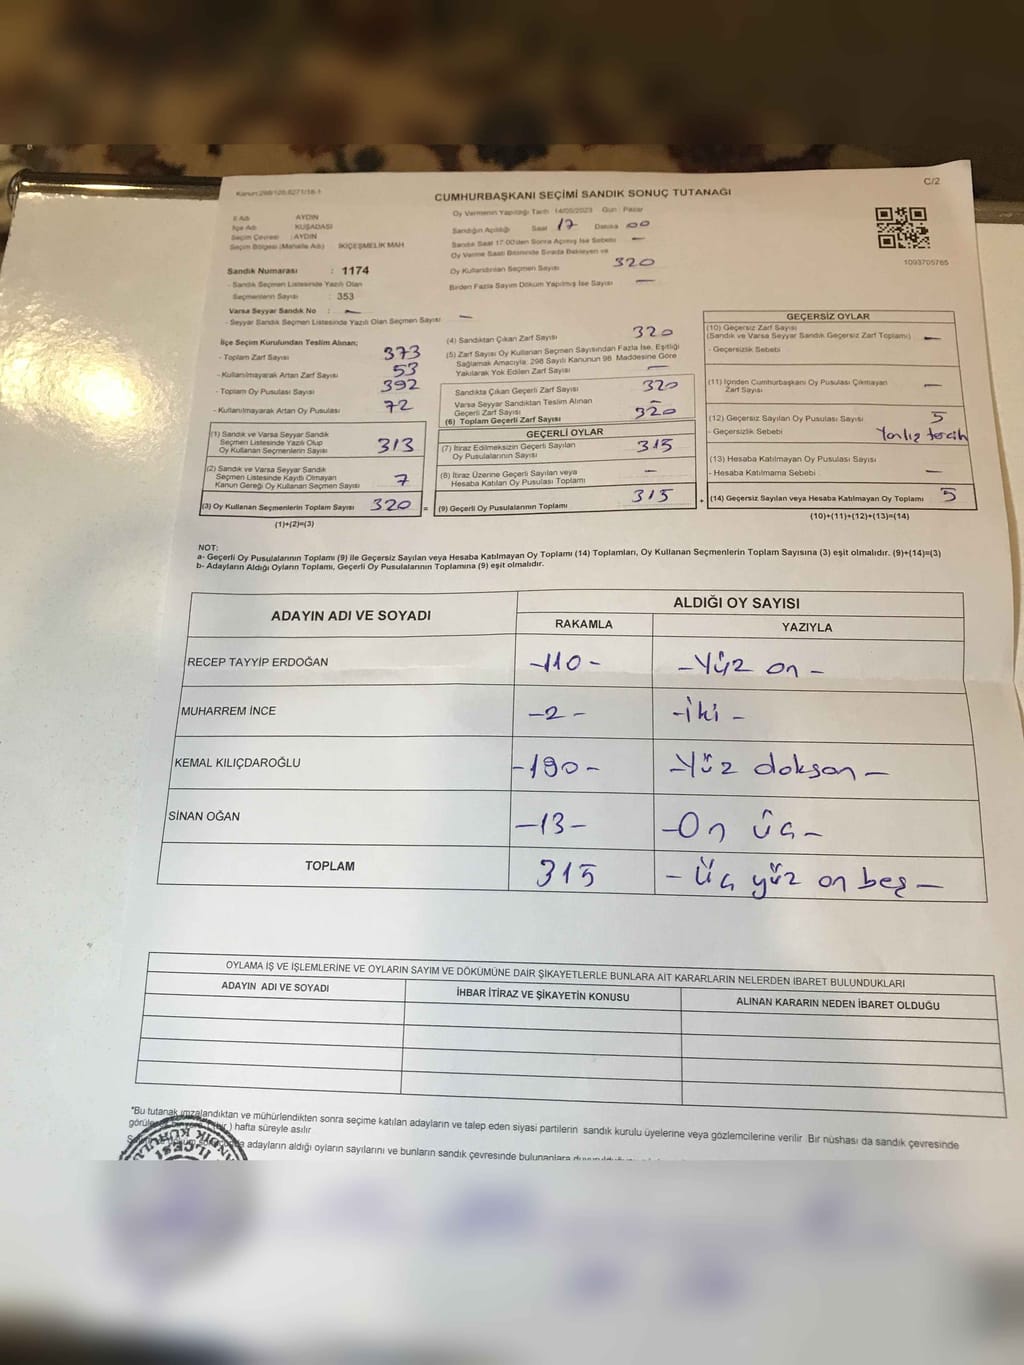 Kanun:298/105,6271/16-1
C/2
CUMHURBAŞKANI SEÇİMİ SANDIK SONUÇ TUTANAĞI
İl Adı AYDIN
İlçe Adı KUŞADASI
Seçim Çevresi : AYDIN
Seçim Bölgesi (Mahalle Adı) İKİÇEŞMELİK MAH
Sandık Numarası : 1174
- Sandık Seçmen Listesinde Yazılı Olan
Seçmenlerin Sayısı : 353
Varsa Seyyar Sandık No : —
- Seyyar Sandık Seçmen Listesinde Yazılı Olan Seçmen Sayısı —
Oy Vermenin Yapıldığı Tarih 14/05/2023 Gün : Pazar
Sandığın Açıldığı Saat 17 Dakika 00
Sandık Saat 17:00'den Sonra Açılmış İse Sebebi —
Oy Verme Saati Bitiminde Sırada Bekleyen ve
Oy Kullandırılan Seçmen Sayısı 320
Birden Fazla Sayım Döküm Yapılmış İse Sayısı —
1093705765
İlçe Seçim Kurulundan Teslim Alınan;
- Toplam Zarf Sayısı 373
- Kullanılmayarak Artan Zarf Sayısı 53
- Toplam Oy Pusulası Sayısı 392
- Kullanılmayarak Artan Oy Pusulası 72
(1) Sandık ve Varsa Seyyar Sandık
Seçmen Listesinde Yazılı Olup
Oy Kullanan Seçmenlerin Sayısı 313
(2) Sandık ve Varsa Seyyar Sandık
Seçmen Listesinde Kayıtlı Olmayan
Kanun Gereği Oy Kullanan Seçmen Sayısı 7
(3) Oy Kullanan Seçmenlerin Toplam Sayısı 320 =
(1)+(2)=(3)
(4) Sandıktan Çıkan Zarf Sayısı 320
(5) Zarf Sayısı Oy Kullanan Seçmen Sayısından Fazla İse, Eşitliği
Sağlamak Amacıyla; 298 Sayılı Kanunun 98. Maddesine Göre
Yakılarak Yok Edilen Zarf Sayısı —
Sandıkta Çıkan Geçerli Zarf Sayısı 320
Varsa Seyyar Sandıktan Teslim Alınan
Geçerli Zarf Sayısı —
(6) Toplam Geçerli Zarf Sayısı 320
GEÇERLİ OYLAR
(7) İtiraz Edilmeksizin Geçerli Sayılan
Oy Pusulalarının Sayısı 315
(8) İtiraz Üzerine Geçerli Sayılan veya
Hesaba Katılan Oy Pusulası Toplamı —
(9) Geçerli Oy Pusulalarının Toplamı 315 +
GEÇERSİZ OYLAR
(10) Geçersiz Zarf Sayısı
(Sandık ve Varsa Seyyar Sandık Geçersiz Zarf Toplamı) —
- Geçersizlik Sebebi
(11) İçinden Cumhurbaşkanı Oy Pusulası Çıkmayan
Zarf Sayısı —
(12) Geçersiz Sayılan Oy Pusulası Sayısı 5
- Geçersizlik Sebebi Yanlız tercih
(13) Hesaba Katılmayan Oy Pusulası Sayısı
- Hesaba Katılmama Sebebi —
(14) Geçersiz Sayılan veya Hesaba Katılmayan Oy Toplamı 5
(10)+(11)+(12)+(13)=(14)
NOT:
a- Geçerli Oy Pusulalarının Toplamı (9) ile Geçersiz Sayılan veya Hesaba Katılmayan Oy Toplamı (14) Toplamları, Oy Kullanan Seçmenlerin Toplam Sayısına (3) eşit olmalıdır. (9)+(14)=(3)
b- Adayların Aldığı Oyların Toplamı, Geçerli Oy Pusulalarının Toplamına (9) eşit olmalıdır.
ADAYIN ADI VE SOYADI ALDIĞI OY SAYISI
RAKAMLA YAZIYLA
RECEP TAYYİP ERDOĞAN -110- -Yüz on-
MUHARREM İNCE -2- -İki-
KEMAL KILIÇDAROĞLU -190- -Yüz doksan-
SİNAN OĞAN -13- -On üç-
TOPLAM 315 -Üç yüz on beş-
OYLAMA İŞ VE İŞLEMLERİNE VE OYLARIN SAYIM VE DÖKÜMÜNE DAİR ŞİKAYETLERLE BUNLARA AİT KARARLARIN NELERDEN İBARET BULUNDUKLARI
ADAYIN ADI VE SOYADI İHBAR İTİRAZ VE ŞİKAYETİN KONUSU ALINAN KARARIN NEDEN İBARET OLDUĞU
*Bu tutanak imzalandıktan ve mühürlendikten sonra seçime katılan adayların ve talep eden siyasi partilerin sandık kurulu üyelerine veya gözlemcilerine verilir. Bir nüshası da sandık çevresinde
) hafta süreyle asılır
adayların aldığı oyların sayılarını ve bunların sandık çevresinde bulunanlara